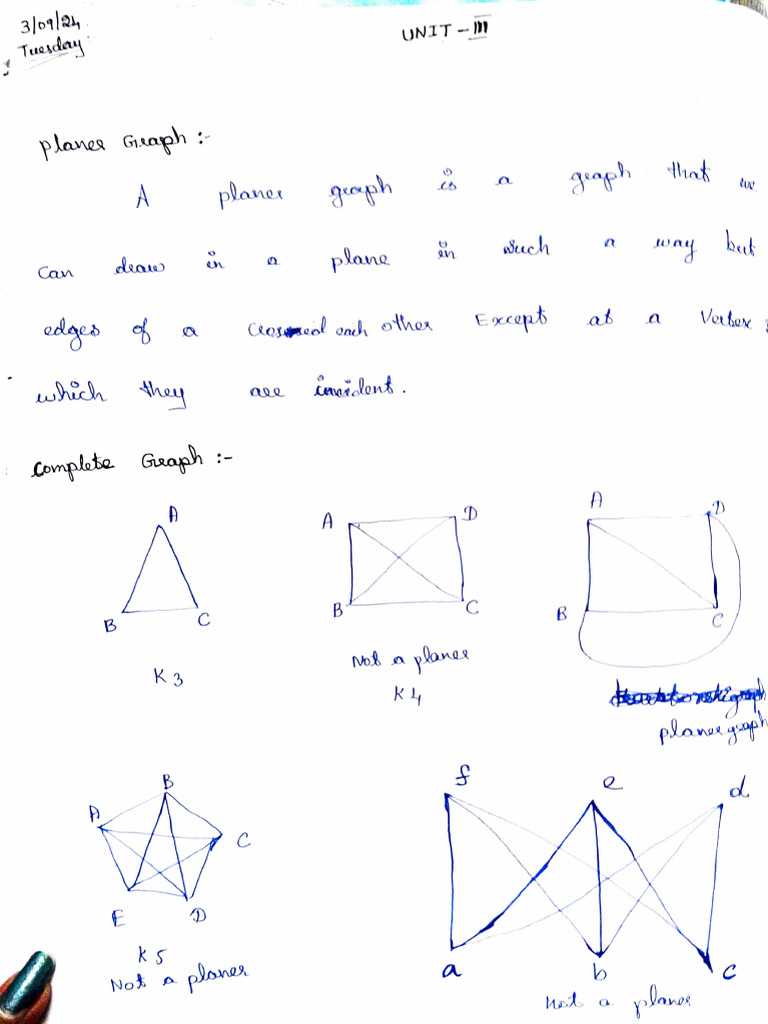 3/09/24
Tuesday
UNIT - III
planer Graph :-
A planer graph is a graph that we
can draw in a plane in such a way but
edges of a each other Except at a Vertex
which they are incident.
Complete Graph :-
A
B C
K3
A D
B C
Not a planer
K4
A D
B C
planer graph
B
A C
E D
K5
Not a planer
f e d
a b c
Not a planer